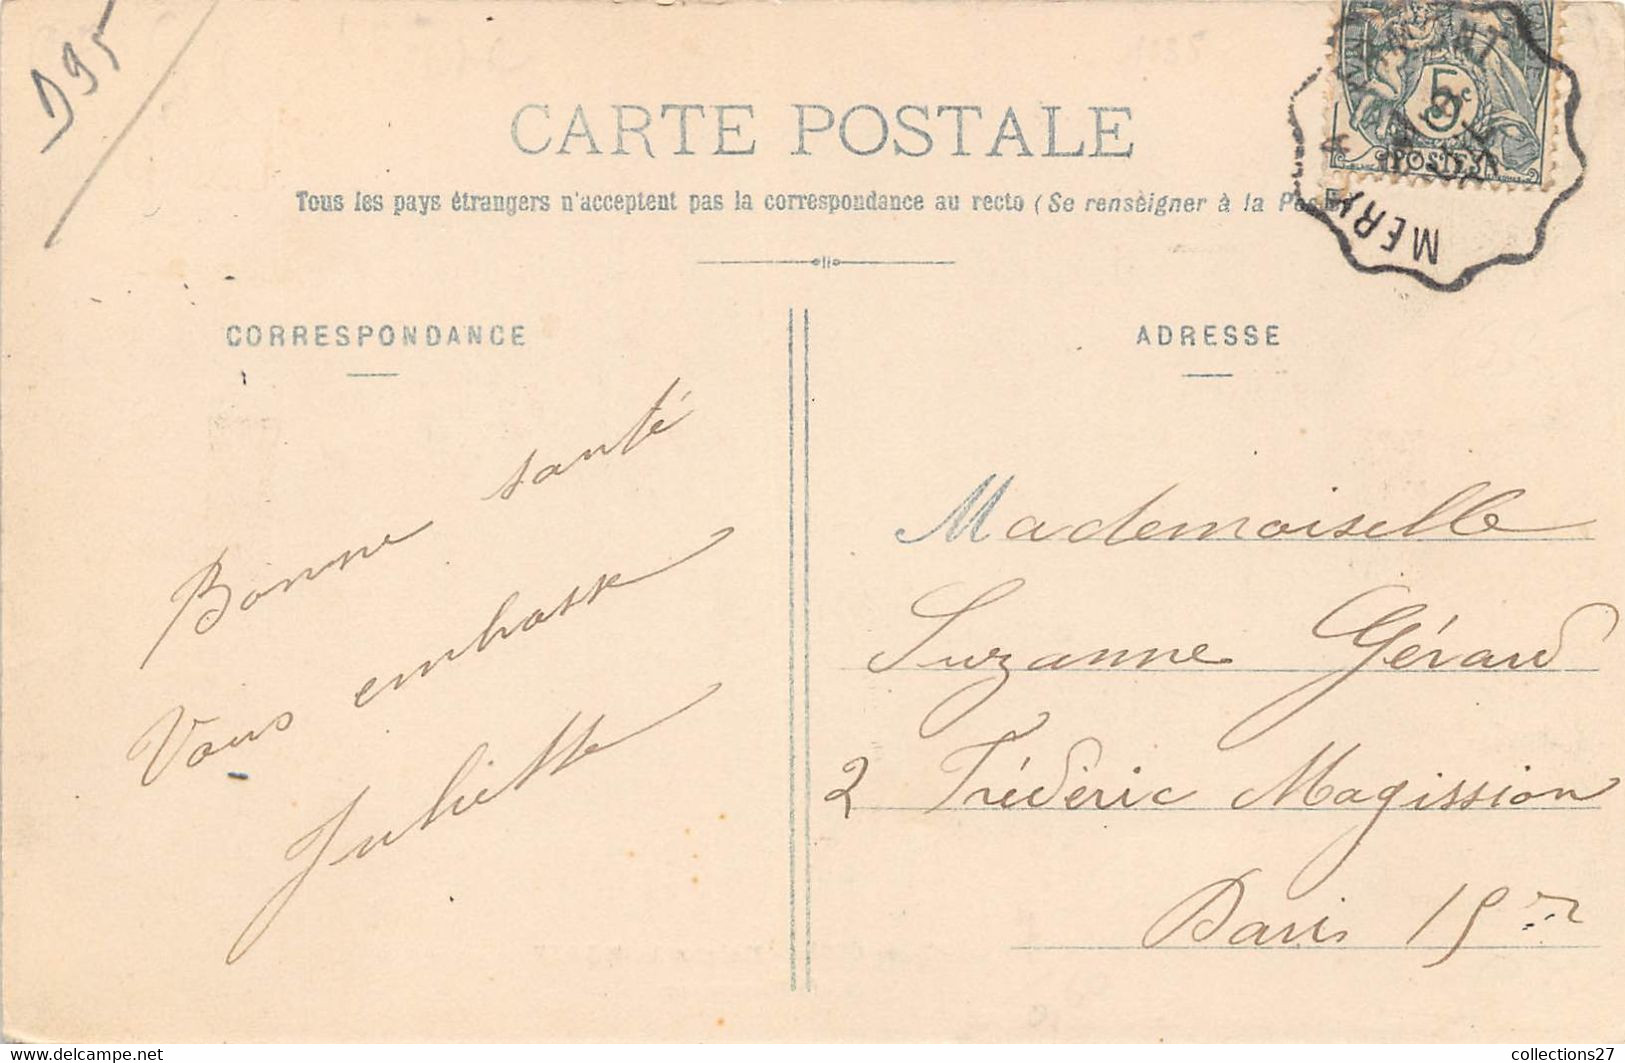 D95
CARTE POSTALE
Tous les pays étrangers n'acceptent pas la correspondance au recto (Se renseigner à la Poste)
5c
POSTES
A MERY
CORRESPONDANCE
Bonne santé
Vous embrasse
Juliette
ADRESSE
Mademoiselle
Suzanne Gérard
2 Frédéric Magission
Paris 15
collections27